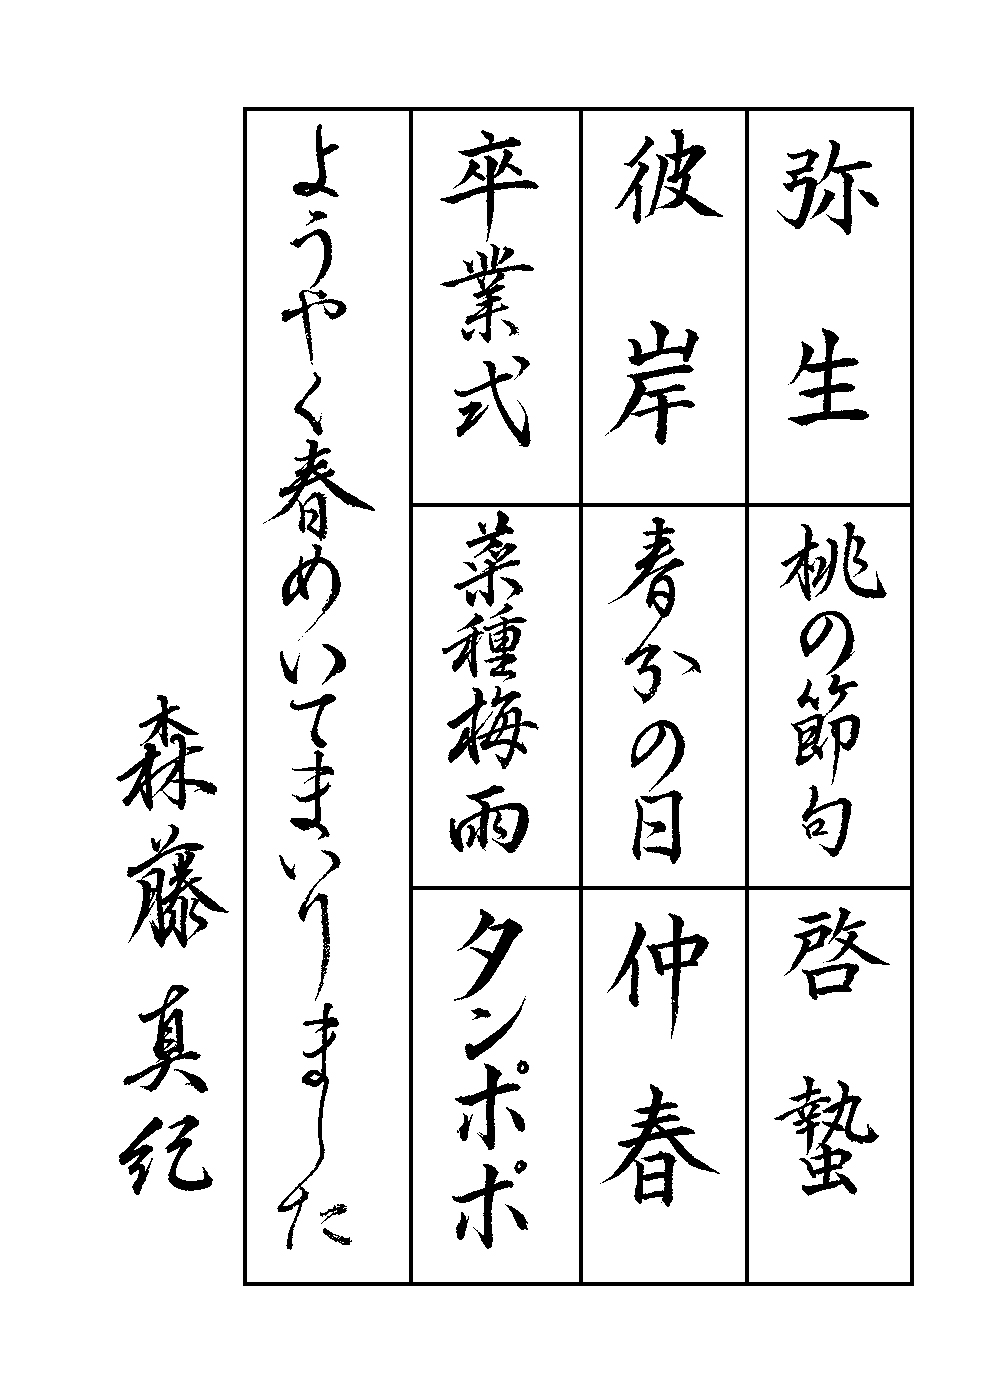 弥生
桃の節句
啓蟄
彼岸
春分の日
仲春
卒業式
菜種梅雨
タンポポ
ようやく春めいてまいりました
森藤真紀